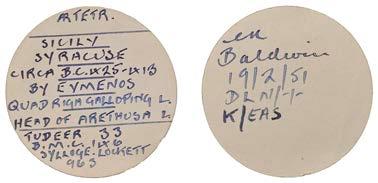 ARTETR.
SICILY
SYRACUSE
CIRCA B.C. 425-413
BY EYMENOS
QUADRIGA GALLOPING L.
HEAD OF ARETHUSA L.
TUDEER 33
B.M.C. 146
SYLLOGE. LOCKETT
963
ex
Baldwin
19/2/51
K/EAS